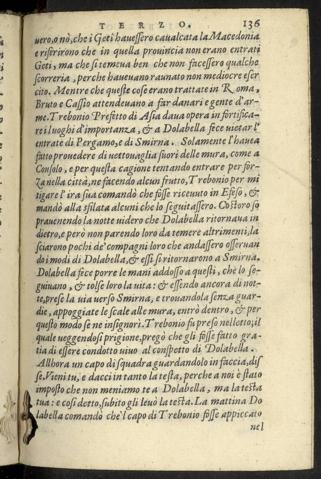 TERZO. 136
uero, o nò, che i Geti hauessero caualcata la Macedonia
e riferirono che in quella prouincia non erano entrati
Geti, ma che si temeua ben che non facessero qualche
scorreria, perche haueuano raunato non mediocre eser
cito. Mentre che queste cose erano trattate in Roma,
Bruto e Cassio attendeuano a far danari e gente d'ar-
me. Trebonio Prefitto di Asia daua opera in fortifica-
re i luoghi d'importanza, & a Dolabella fece uietar l'
entrate di Pergamo, e di Smirna. Solamente l'hauea
fatto prouedere di uettouaglia fuori delle mura, come a
Consolo, e per questa cagione tentando entrare per for-
za nella città, ne facendo alcun frutto, Trebonio per mi
tigare l'ira sua comandò che fosse riceuuto in Efeso, &
mandò alla sfilata alcuni che lo seguitassero. Costoro so
prauenendo la notte uidero che Dolabella ritornaua in
dietro, e però non parendo loro da temere altrimenti, la
sciarono pochi de' compagni loro che andassero osseruan
do i modi di Dolabella, & essi si ritornarono a Smirna.
Dolabella fece porre le mani addosso a questi, che lo se-
guiuano, & tolse loro la uita: & essendo ancora di not-
te, prese la uia uerso Smirna, e trouandola senza guar-
die, appoggiate le scale alle mura, entrò dentro, & per
questo modo se ne insignorì. Trebonio fu preso nel letto, il
quale ueggendosi prigione, pregò che gli fosse fatto gra-
tia di essere condotto uiuo al conspetto di Dolabella.
Allhora un capo di squadra guardandolo in faccia, dis
se, Vieni tu, e dacci in tanto la testa, perche a noi è stato
imposto che non meniamo te a Dolabella, ma la testa
tua: e cosi detto, subito gli leuò la testa. La mattina Do
labella comandò che'l capo di Trebonio fosse appiccato
nel